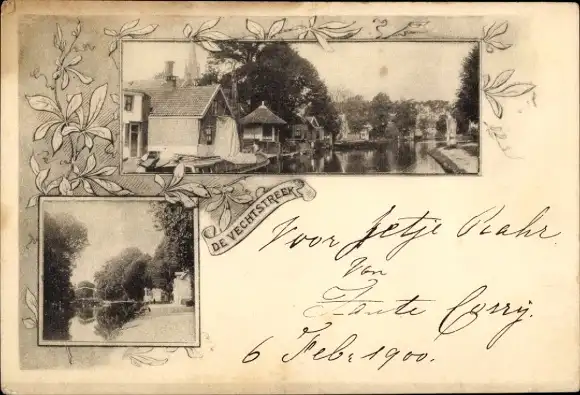 DE VECHTSTREEK
Voor Jetje Rahr
Van
Tante Corrij.
6 Feb. 1900.